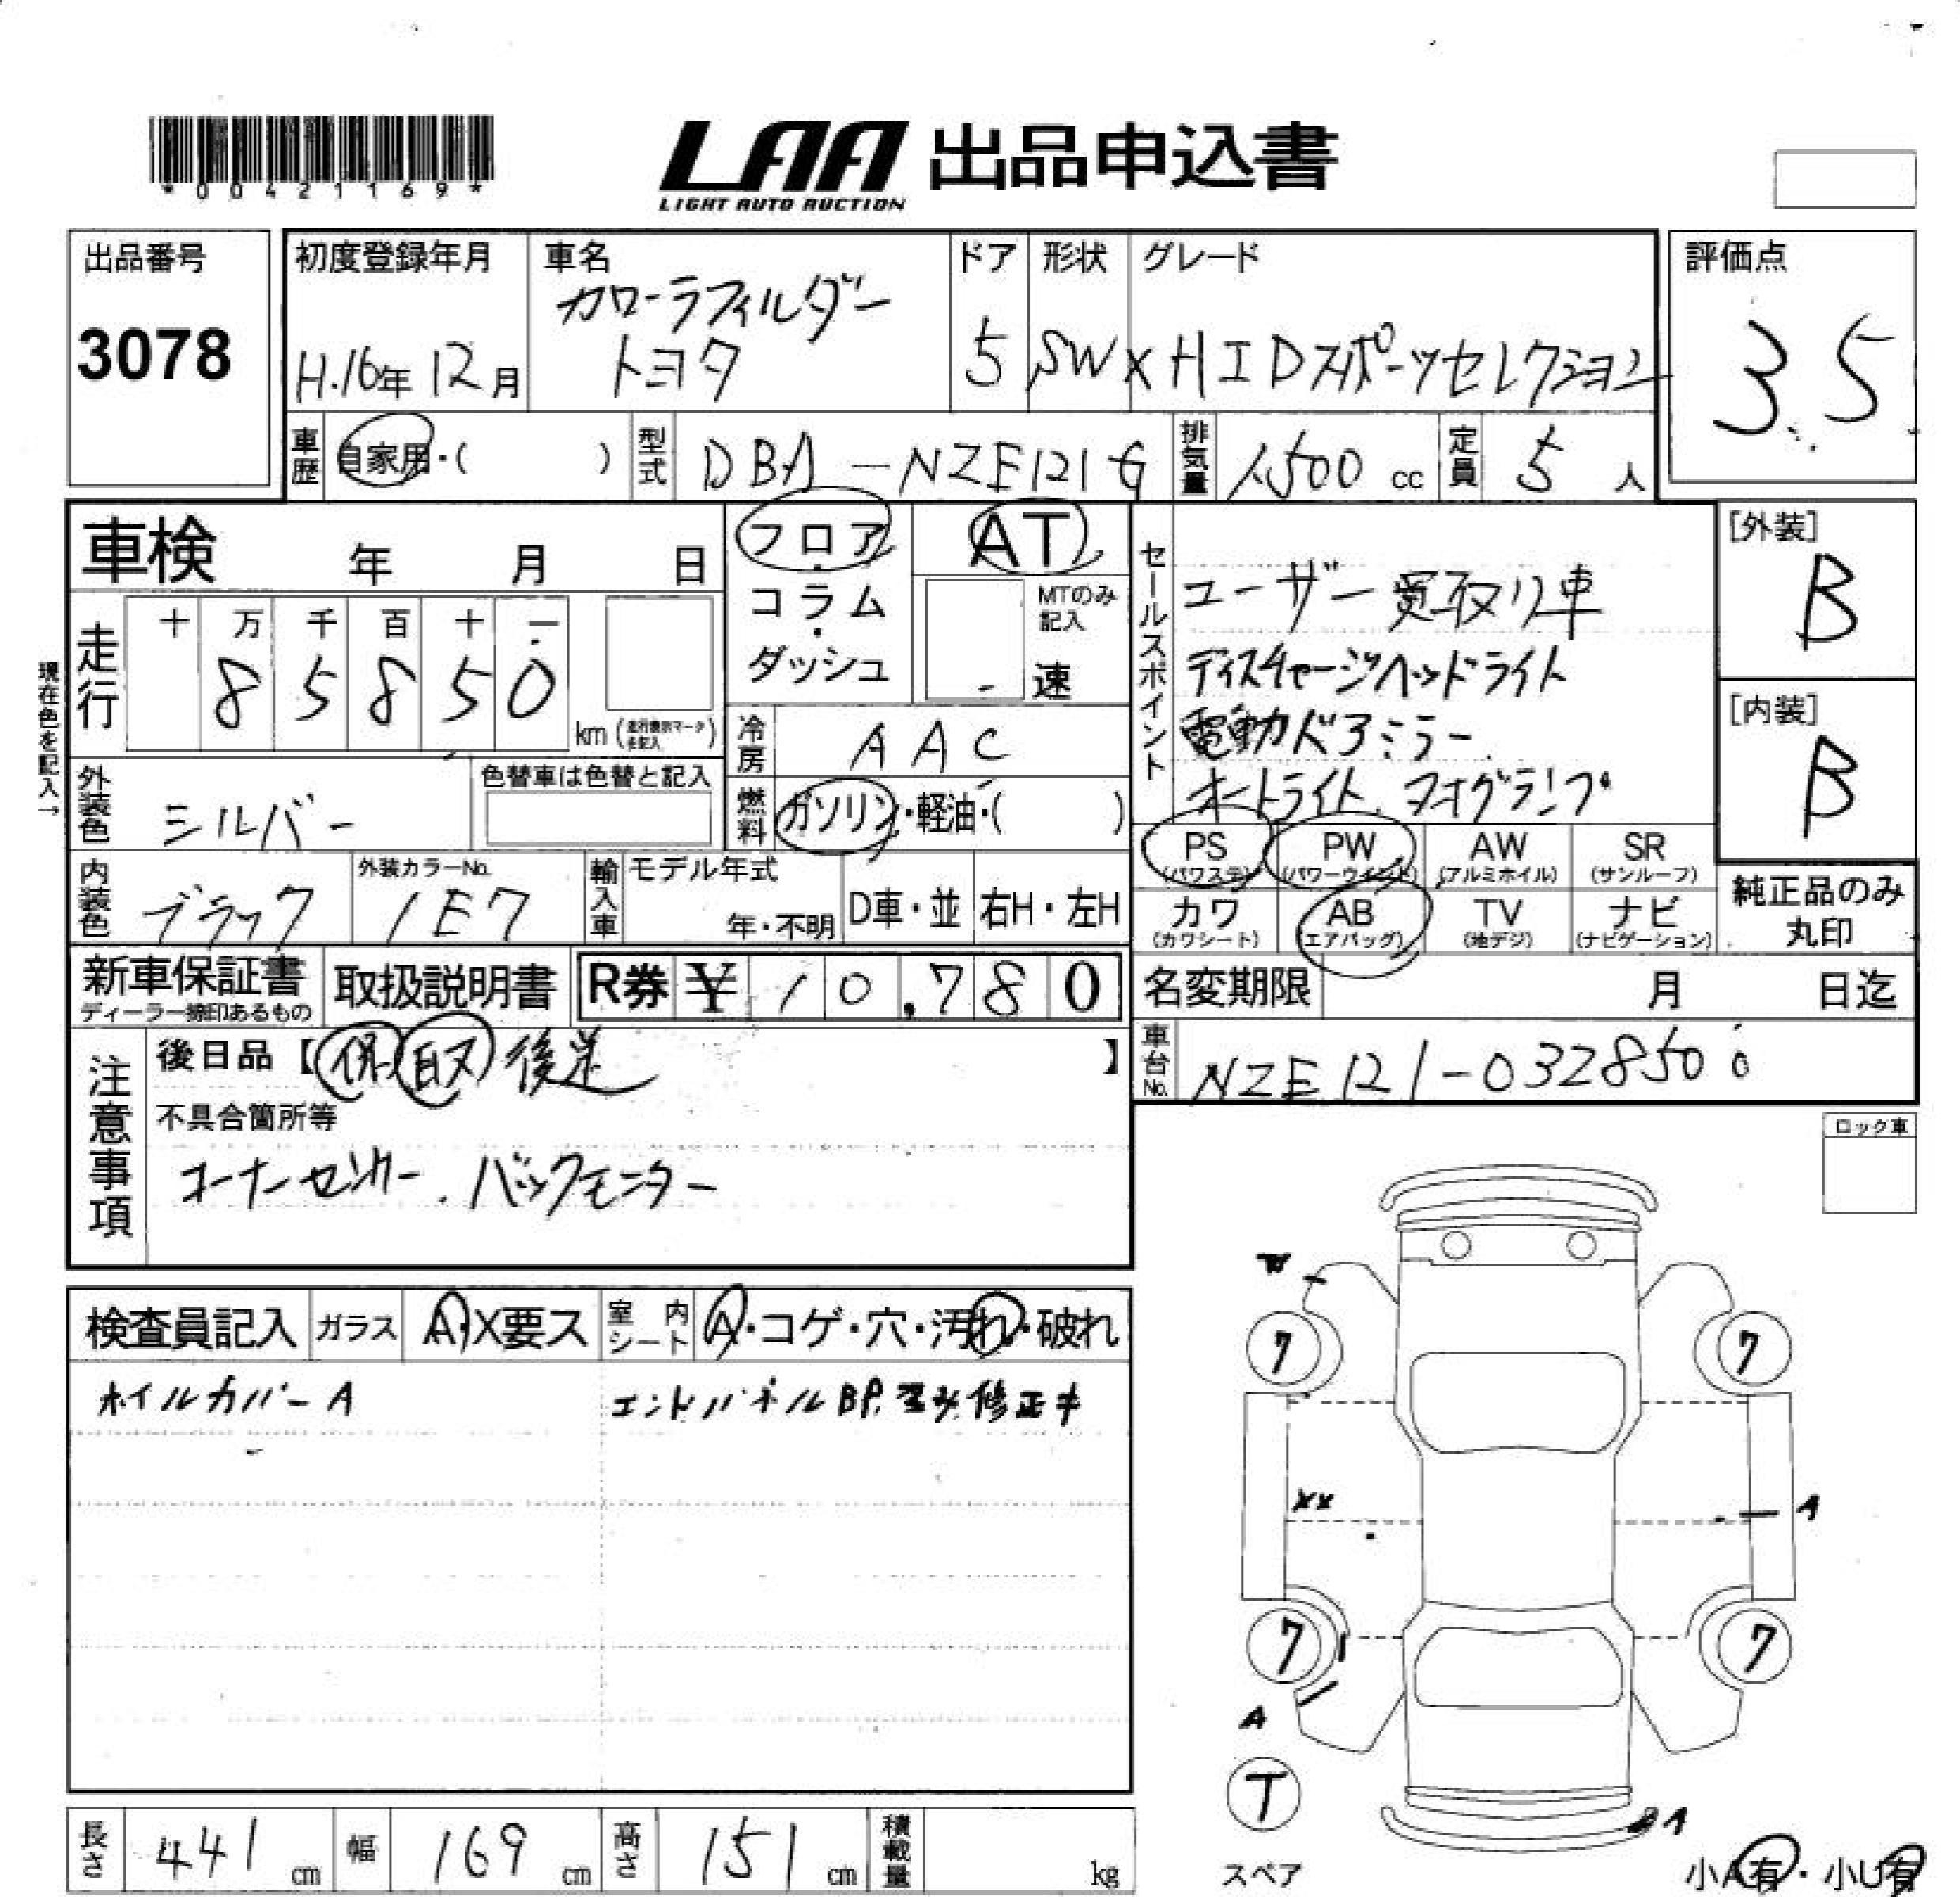 *00421169*
LAA 出品申込書
LIGHT AUTO AUCTION
出品番号
3078
初度登録年月
H.16年 12月
車名
カローラフィルダー
トヨタ
ドア
5
形状
SW
グレード
X HIDスポーツセレクション
評価点
3.5
車歴 自家用・( )
型式 DBA-NZE121G
排気量 1,500 cc
定員 5 人
車検 年 月 日
フロア・コラム・ダッシュ
AT
MTのみ記入
速
走行
十 万 千 百 十 一
8 5 8 5 0
km (走行表示マークを記入)
現在色を記入→
冷房 AAC
外装色 シルバー
色替車は色替と記入
燃料 ガソリン・軽油・( )
内装色 ブラック
外装カラーNo.
1E7
輸入車
モデル年式
年・不明
D車・並
右H・左H
セールスポイント
ユーザー買取り車
ディスチャージヘッドライト
電動ドアミラー
オートライト、フォグランプ
[外装]
B
[内装]
B
PS (パワステ)
PW (パワーウインド)
AW (アルミホイル)
SR (サンルーフ)
カワ (カワシート)
AB (エアバッグ)
TV (地デジ)
ナビ (ナビゲーション)
純正品のみ
丸印
新車保証書
ディーラー捺印あるもの
取扱説明書
R券 ¥ 10,780
名変期限 月 日迄
車台No. NZE121-0328500
注意事項
後日品【保 取 後送 】
不具合箇所等
コーナーセンサー、バックモニター
ロック車
検査員記入
ガラス A・X要ス
室内シート A・コゲ・穴・汚れ・破れ
ホイルカバーA
エンドパネルBP. 歪み修正キ
W
7
7
XX
A
7
7
A
T
スペア
A
小A有・小U有
長さ 441 cm
幅 169 cm
高さ 151 cm
積載量 kg